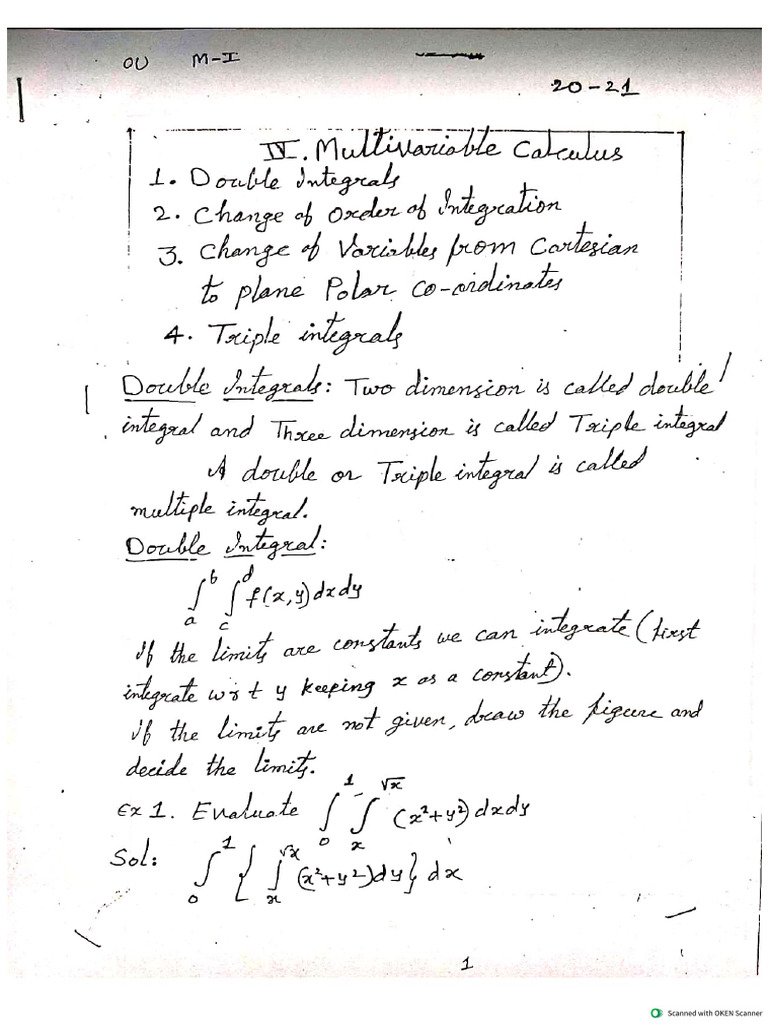 OU M-I
20-21
IV. Multivariable Calculus
1. Double Integrals
2. Change of Order of Integration
3. Change of Variables from Cartesian
to plane Polar co-ordinates
4. Triple integrals
Double Integrals: Two dimension is called double
integral and Three dimension is called Triple integral
A double or Triple integral is called
multiple integral.
Double Integral:
∫_a^b ∫_c^d f(x,y) dx dy
If the limits are constants we can integrate (first
integrate w r t y keeping x as a constant).
If the limits are not given, draw the figure and
decide the limits.
Ex 1. Evaluate ∫_0^1 ∫_x^√x (x²+y²) dx dy
Sol: ∫_0^1 { ∫_x^√x (x²+y²) dy } dx
1
Scanned with OKEN Scanner